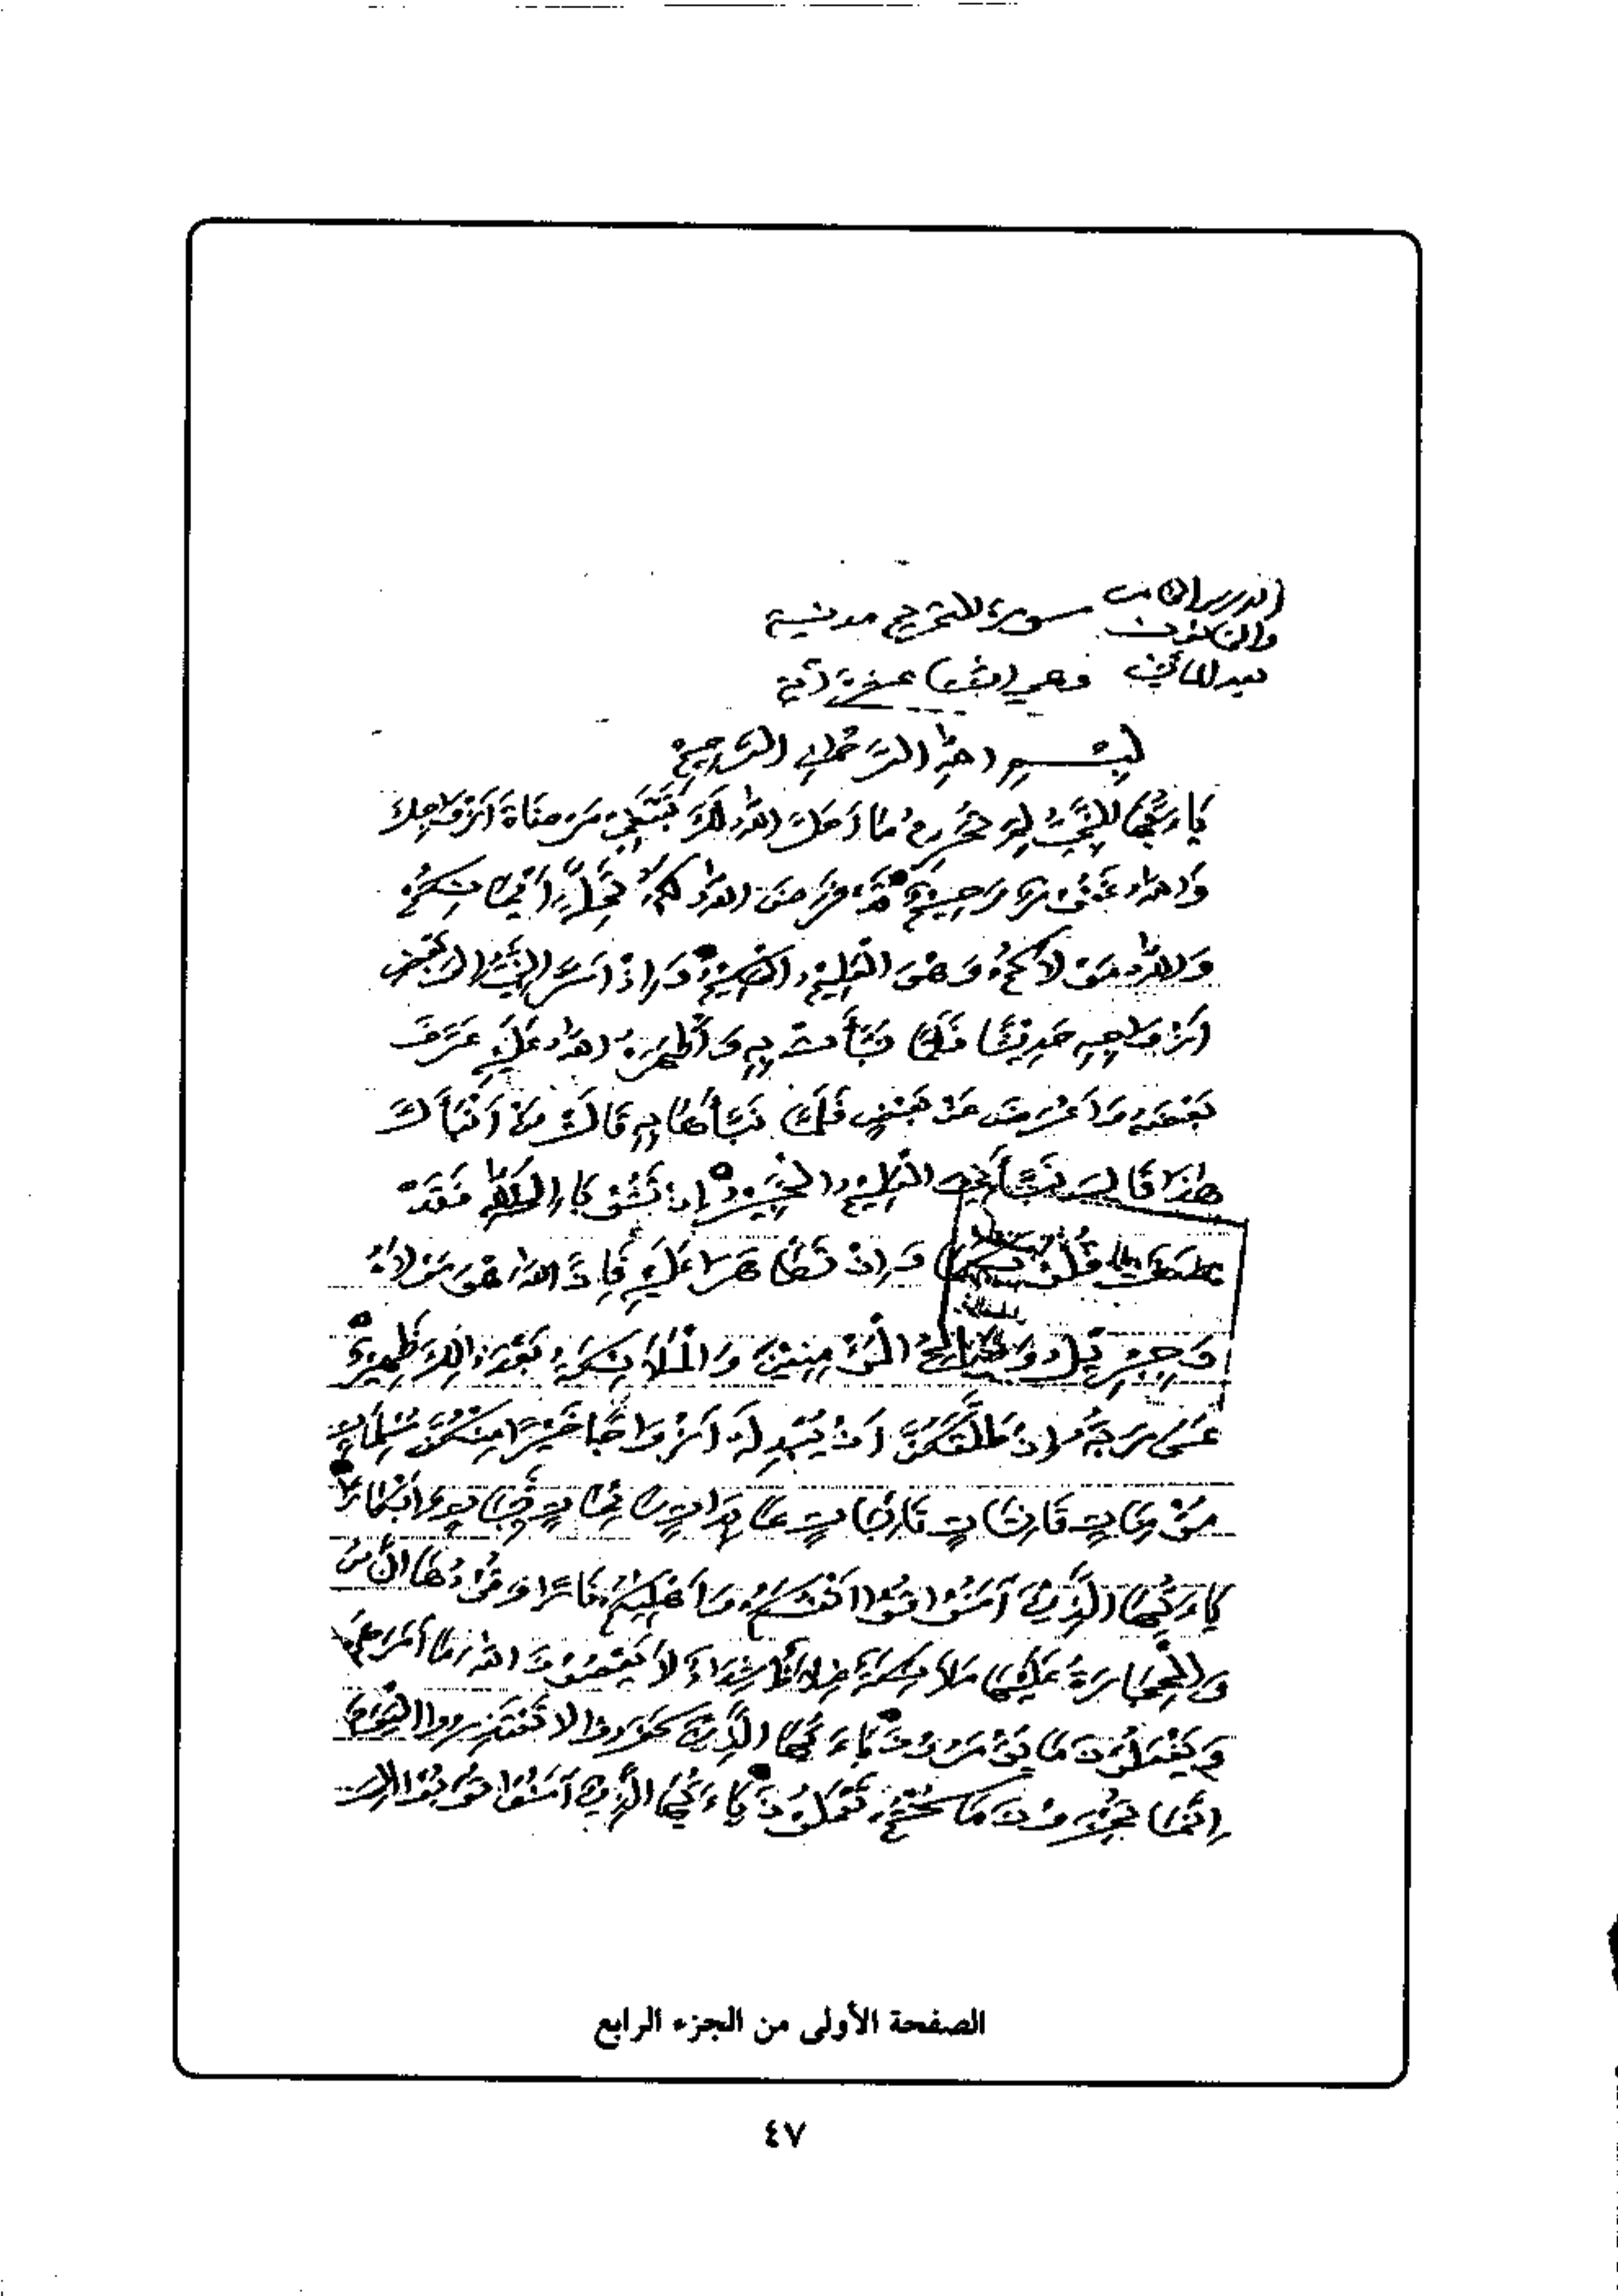 الدرس الثامن سورة التحريم مدنية
والثلاثون
بعد المائتين وهي اثنتا عشرة آية
بِسْمِ اللهِ الرَّحْمٰنِ الرَّحِيمِ
يَاءَيُّهَا النَّبِيُّ لِمَ تُحَرِّمُ مَا أَحَلَّ اللهُ لَكَ تَبْتَغِي مَرْضَاةَ أَزْوَاجِكَ
وَاللهُ غَفُورٌ رَحِيمٌ قَدْ فَرَضَ اللهُ لَكُمْ تَحِلَّةَ أَيْمَانِكُمْ
وَاللهُ مَوْلَاكُمْ وَهُوَ الْعَلِيمُ الْحَكِيمُ وَإِذْ أَسَرَّ النَّبِيُّ إِلَى بَعْضِ
أَزْوَاجِهِ حَدِيثًا فَلَمَّا نَبَّأَتْ بِهِ وَأَظْهَرَهُ اللهُ عَلَيْهِ عَرَّفَ
بَعْضَهُ وَأَعْرَضَ عَنْ بَعْضٍ فَلَمَّا نَبَّأَهَا بِهِ قَالَتْ مَنْ أَنْبَأَكَ
هٰذَا قَالَ نَبَّأَنِيَ الْعَلِيمُ الْخَبِيرُ إِنْ تَتُوبَا إِلَى اللهِ فَقَدْ
صَغَتْ قُلُوبُكُمَا وَإِنْ تَظَاهَرَا عَلَيْهِ فَإِنَّ اللهَ هُوَ مَوْلَاهُ
وَجِبْرِيلُ وَصَالِحُ الْمُؤْمِنِينَ وَالْمَلَائِكَةُ بَعْدَ ذَلِكَ ظَهِيرٌ
عَسَى رَبُّهُ إِنْ طَلَّقَكُنَّ أَنْ يُبْدِلَهُ أَزْوَاجًا خَيْرًا مِنْكُنَّ مُسْلِمَاتٍ
مُؤْمِنَاتٍ قَانِتَاتٍ تَائِبَاتٍ عَابِدَاتٍ سَائِحَاتٍ ثَيِّبَاتٍ وَأَبْكَارًا
يَاءَيُّهَا الَّذِينَ آمَنُوا قُوا أَنْفُسَكُمْ وَأَهْلِيكُمْ نَارًا وَقُودُهَا النَّاسُ
وَالْحِجَارَةُ عَلَيْهَا مَلَائِكَةٌ غِلَاظٌ شِدَادٌ لَا يَعْصُونَ اللهَ مَا أَمَرَهُمْ
وَيَفْعَلُونَ مَا يُؤْمَرُونَ يَاءَيُّهَا الَّذِينَ كَفَرُوا لَا تَعْتَذِرُوا الْيَوْمَ
إِنَّمَا تُجْزَوْنَ مَا كُنْتُمْ تَعْمَلُونَ يَاءَيُّهَا الَّذِينَ آمَنُوا تُوبُوا إِلَى
الصفحة الأولى من الجزء الرابع
٤٧